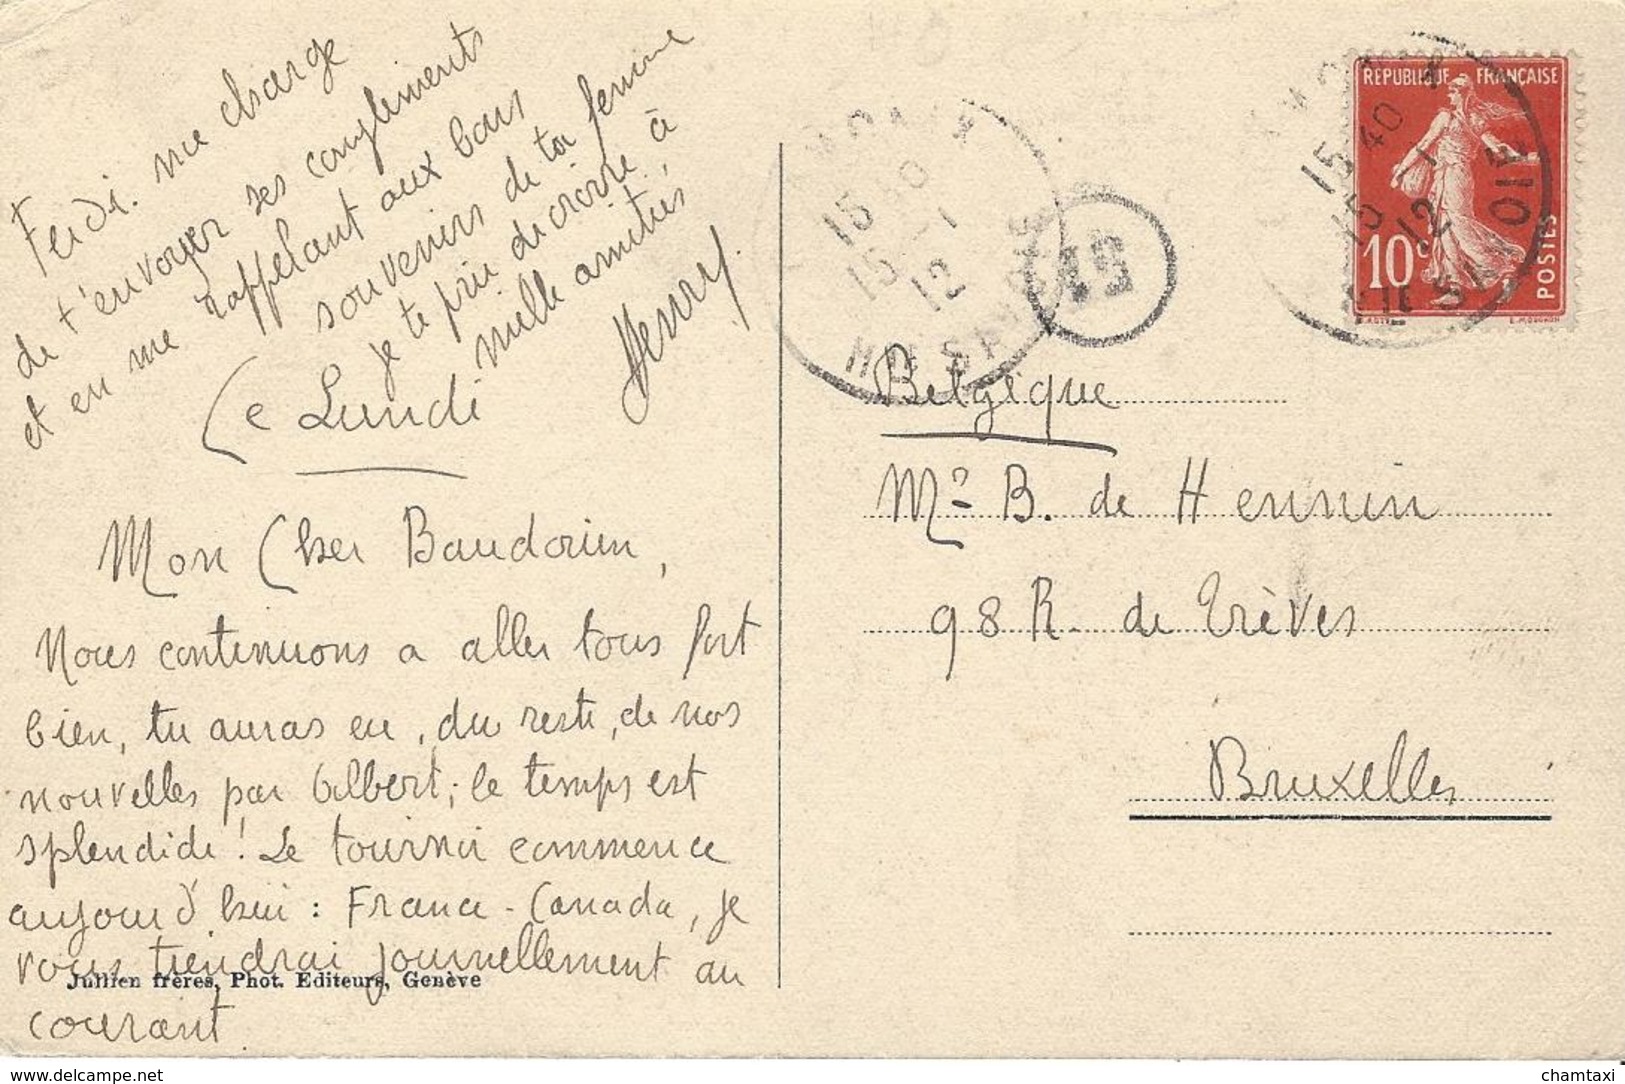 Ce Lundi
Mon Cher Baudouin,
Nous continuons a aller tous fort
bien, tu auras eu, du reste, de nos
nouvelles par Gilbert; le temps est
splendide! Le tournoi commence
aujourd'hui : France-Canada, je
vous tiendrai journellement au
courant
Ferdi. me charge
de t'envoyer ses compliments
et en me rappelant aux bons
souvenirs de ta femme
je te prie de croire à
mille amitiés
Henry.
Jullien frères, Phot. Editeurs, Genève
RÉPUBLIQUE FRANÇAISE
10 c
POSTES
15 40
15 - 1
12
HTE SAVOIE
15 40
15 1
12
HTE SAVOIE
Belgique
Mr B. de Hennin
98 R. de Trèves
Bruxelles
www.delcampe.net
chamtaxi